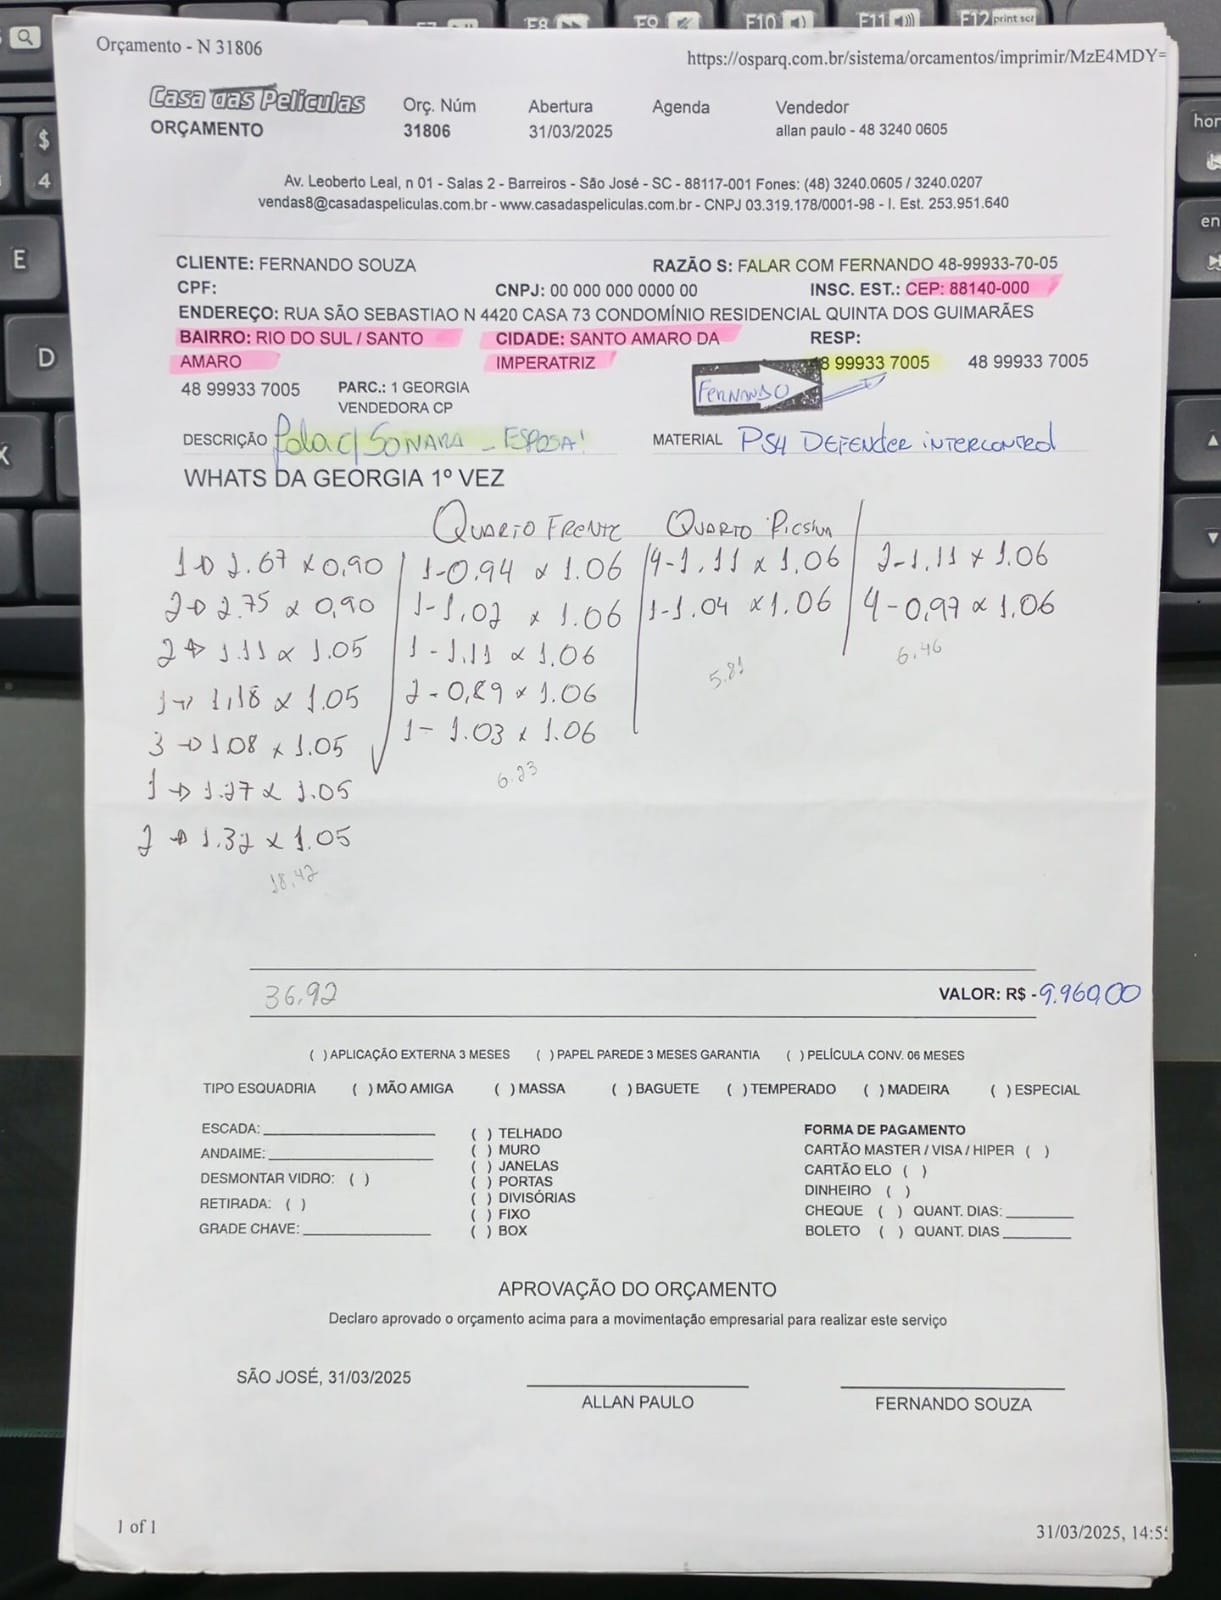 Orçamento - N 31806
https://osparq.com.br/sistema/orcamentos/imprimir/MzE4MDY=
Casa das Películas
ORÇAMENTO
Orç. Núm
31806
Abertura
31/03/2025
Agenda
Vendedor
allan paulo - 48 3240 0605
Av. Leoberto Leal, n 01 - Salas 2 - Barreiros - São José - SC - 88117-001 Fones: (48) 3240.0605 / 3240.0207
vendas8@casadaspeliculas.com.br - www.casadaspeliculas.com.br - CNPJ 03.319.178/0001-98 - I. Est. 253.951.640
CLIENTE: FERNANDO SOUZA
RAZÃO S: FALAR COM FERNANDO 48-99933-70-05
CPF:
CNPJ: 00 000 000 0000 00
INSC. EST.: CEP: 88140-000
ENDEREÇO: RUA SÃO SEBASTIAO N 4420 CASA 73 CONDOMÍNIO RESIDENCIAL QUINTA DOS GUIMARÃES
BAIRRO: RIO DO SUL / SANTO
AMARO
CIDADE: SANTO AMARO DA
IMPERATRIZ
RESP:
8 99933 7005
48 99933 7005
48 99933 7005
PARC.: 1 GEORGIA
VENDEDORA CP
FERNANDO
DESCRIÇÃO
c/ SONARA - ESPOSA!
MATERIAL PS4 DEFENDER INTERCONTROL
WHATS DA GEORGIA 1º VEZ
QUARTO FRENTE
QUARTO
1 → 2.67 x 0,90
2 → 2.75 x 0,90
2 → 1.11 x 1.05
1 → 1,18 x 1.05
3 → 1.08 x 1.05
1 → 1.27 x 1.05
2 → 1.32 x 1.05
18,42
1 - 0,94 x 1.06
1 - 1,02 x 1.06
1 - 1,11 x 1.06
2 - 0,89 x 1.06
1 - 1.03 x 1.06
6.23
4 - 1,11 x 1,06
1 - 1.04 x 1.06
5.81
2 - 1,11 x 1.06
4 - 0,97 x 1,06
6.46
36,92
VALOR: R$ - 9.960,00
( ) APLICAÇÃO EXTERNA 3 MESES ( ) PAPEL PAREDE 3 MESES GARANTIA ( ) PELÍCULA CONV. 06 MESES
TIPO ESQUADRIA ( ) MÃO AMIGA ( ) MASSA ( ) BAGUETE ( ) TEMPERADO ( ) MADEIRA ( ) ESPECIAL
ESCADA:
ANDAIME:
DESMONTAR VIDRO: ( )
RETIRADA: ( )
GRADE CHAVE:
( ) TELHADO
( ) MURO
( ) JANELAS
( ) PORTAS
( ) DIVISÓRIAS
( ) FIXO
( ) BOX
FORMA DE PAGAMENTO
CARTÃO MASTER / VISA / HIPER ( )
CARTÃO ELO ( )
DINHEIRO ( )
CHEQUE ( ) QUANT. DIAS:
BOLETO ( ) QUANT. DIAS
APROVAÇÃO DO ORÇAMENTO
Declaro aprovado o orçamento acima para a movimentação empresarial para realizar este serviço
SÃO JOSÉ, 31/03/2025
ALLAN PAULO
FERNANDO SOUZA
1 of 1
31/03/2025, 14:5
F8
F9
F10
F11
F12 print scr
$
4
E
D
X
hom
en